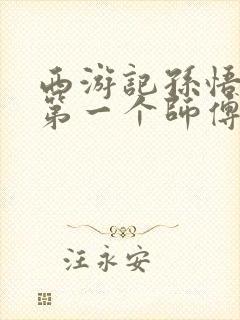 西游記孫悟
第一个師傅
汪永安